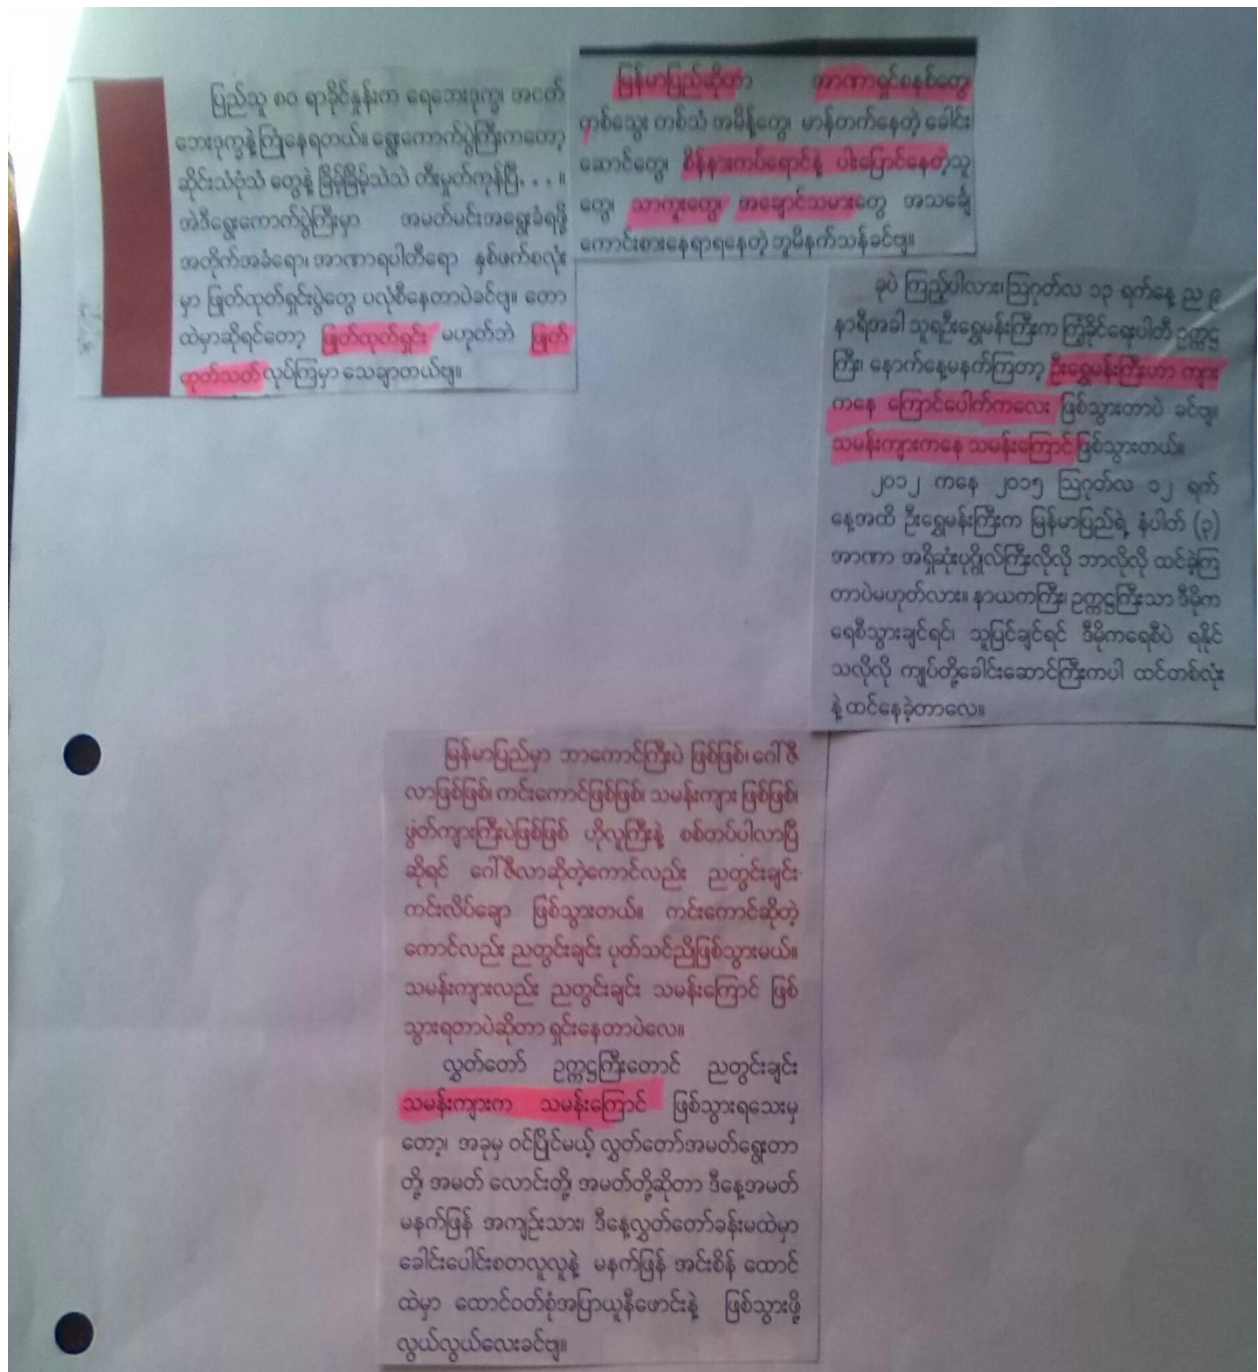 ပြည်သူ ၈၀ ရာခိုင်နှုန်းက ရေဘေးဒုက္ခ၊ အငတ်
ဘေးဒုက္ခနဲ့ ကြုံနေရတယ်။ ရွေးကောက်ပွဲကြီးကတော့
ဆိုင်းသံဗုံသံ တွေနဲ့ ခြိမ့်ခြိမ့်သဲသဲ တီးမှုတ်ကုန်ပြီ. . .။
အဲဒီရွေးကောက်ပွဲကြီးမှာ အမတ်မင်းအရွေးခံရဖို့
အတိုက်အခံရော၊ အာဏာရပါတီရော နှစ်ဖက်စလုံး
မှာ ဖြုတ်ထုတ်ရှင်းပွဲတွေ ပလုံစီနေတာပဲခင်ဗျ။ တော
ထဲမှာဆိုရင်တော့ ဖြုတ်ထုတ်ရှင်း မဟုတ်ဘဲ ဖြုတ်
ထုတ်သတ် လုပ်ကြမှာ သေချာတယ်ဗျ။
မြန်မာပြည်ဆိုတာ အာဏာရှင်စနစ်တွေ
တစ်သွေး တစ်သံ အမိန့်တွေ၊ မာန်တက်နေတဲ့ ခေါင်း
ဆောင်တွေ၊ စိန်နားကပ်ရောင်နဲ့ ပါးပြောင်နေတဲ့သူ
တွေ၊ သာကူးတွေ၊ အချောင်သမားတွေ အသချေ်
ကောင်းစားနေရာရနေတဲ့ ဘူမိနက်သန်ခင်ဗျ။
ခုပဲ ကြည့်ပါလား၊ ဩဂုတ်လ ၁၃ ရက်နေ့ ည ၉
နာရီအခါ သူရဦးရွှေမန်းကြီးက ကြံ့ခိုင်ရေးပါတီ ဥက္ကဋ္ဌ
ကြီး၊ နောက်နေ့မနက်ကြတာ့ ဦးရွှေမန်းကြီးဟာ ကျား
ကနေ ကြောင်ပေါက်ကလေး ဖြစ်သွားတာပဲ ခင်ဗျ။
သမန်းကျားကနေ သမန်းကြောင် ဖြစ်သွားတယ်။
၂၀၁၂ ကနေ ၂၀၁၅ ဩဂုတ်လ ၁၂ ရက်
နေ့အထိ ဦးရွှေမန်းကြီးက မြန်မာပြည်ရဲ့ နံပါတ် (၃)
အာဏာ အရှိဆုံးပုဂ္ဂိုလ်ကြီးလိုလို ဘာလိုလို ထင်ခဲ့ကြ
တာပဲမဟုတ်လား။ နာယကကြီး၊ ဥက္ကဋ္ဌကြီးသာ ဒီမိုက
ရေစီသွားချင်ရင်၊ သူပြင်ချင်ရင် ဒီမိုကရေစီပဲ ရနိုင်
သလိုလို ကျုပ်တို့ခေါင်းဆောင်ကြီးကပါ ထင်တစ်လုံး
နဲ့ ထင်နေခဲ့တာလေ။
မြန်မာပြည်မှာ ဘာကောင်ကြီးပဲ ဖြစ်ဖြစ်၊ ဂေါ်ဇီ
လာဖြစ်ဖြစ်၊ ကင်းကောင်ဖြစ်ဖြစ်၊ သမန်းကျား ဖြစ်ဖြစ်၊
ဖွံတ်ကျားကြီးပဲဖြစ်ဖြစ် ဟိုလူကြီးနဲ့ စစ်တပ်ပါလာပြီ
ဆိုရင် ဂေါ်ဇီလာဆိုတဲ့ကောင်လည်း ညတွင်းချင်း
ကင်းလိပ်ချော ဖြစ်သွားတယ်။ ကင်းကောင်ဆိုတဲ့
ကောင်လည်း ညတွင်းချင်း ပုတ်သင်ညိုဖြစ်သွားမယ်။
သမန်းကျားလည်း ညတွင်းချင်း သမန်းကြောင် ဖြစ်
သွားရတာပဲဆိုတာ ရှင်းနေတာပဲလေ။
လွှတ်တော် ဥက္ကဋ္ဌကြီးတောင် ညတွင်းချင်း
သမန်းကျားက သမန်းကြောင် ဖြစ်သွားရသေးမှ
တော့၊ အခုမှ ဝင်ပြိုင်မယ့် လွှတ်တော်အမတ်ရွေးတာ
တို့ အမတ် လောင်းတို့ အမတ်တို့ဆိုတာ ဒီနေ့အမတ်
မနက်ဖြန် အကျဉ်းသား၊ ဒီနေ့လွှတ်တော်ခန်းမထဲမှာ
ခေါင်းပေါင်းစတလူလူနဲ့ မနက်ဖြန် အင်းစိန် ထောင်
ထဲမှာ ထောင်ဝတ်စုံအပြာယူနီဖောင်းနဲ့ ဖြစ်သွားဖို့
လွယ်လွယ်လေးခင်ဗျ။